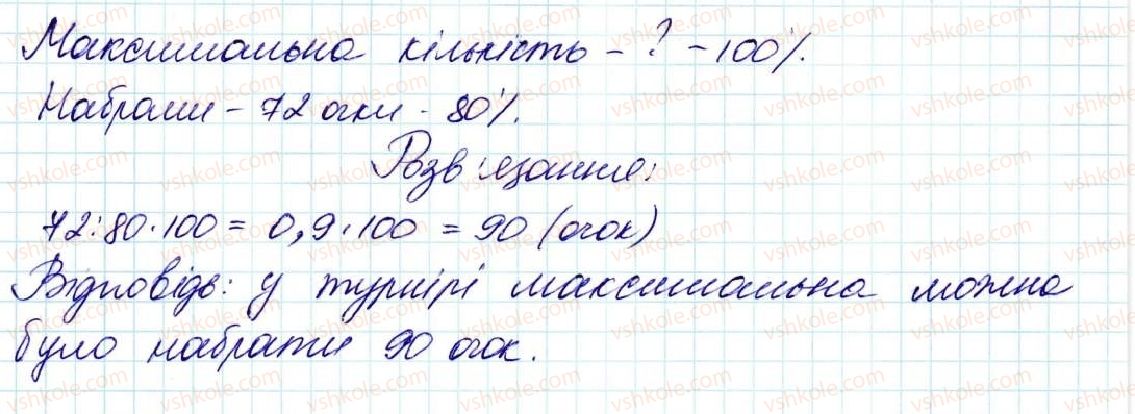 Максимальна кількість - ? - 100%.
Набрали - 72 очки - 80%.
Розв'язання:
72:80·100 = 0,9·100 = 90 (очок)
Відповідь: у турнірі максимальна можна
було набрати 90 очок.